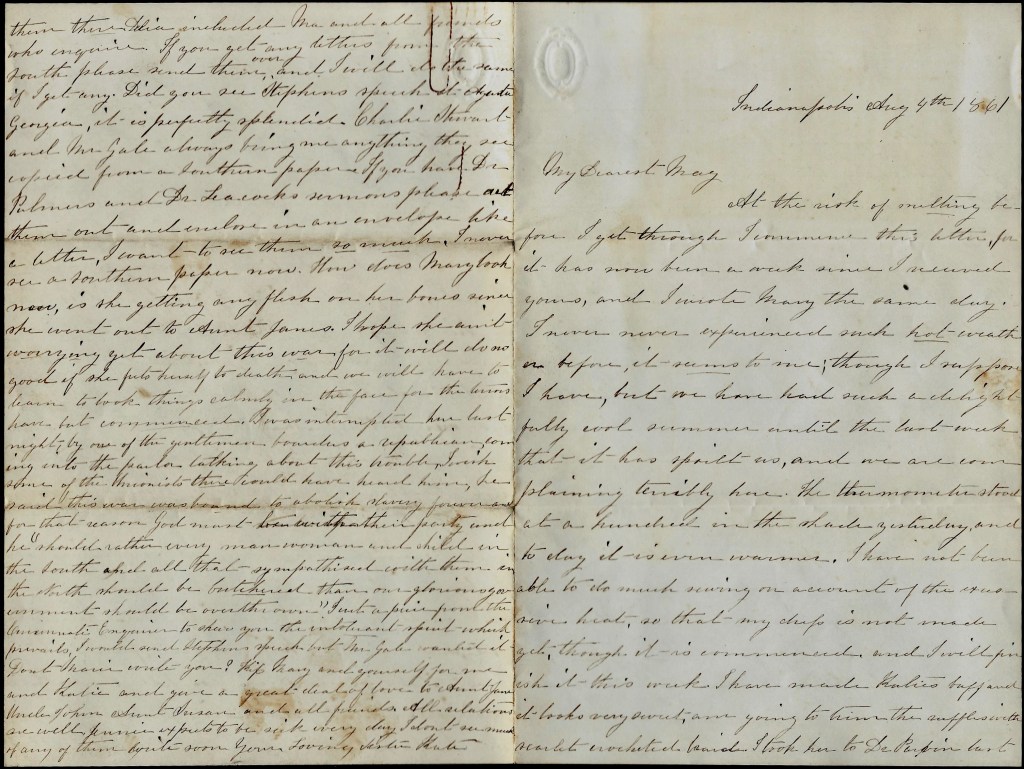 them there Delia included Ma and all friends
who enquire. If you get any letters from the
South please send them over, and I will do the same
if I get any. Did you see Stephens speech at Augusta
Georgia, it is perfectly splendid. Charlie Stewart
and Mr Gale always bring me anything they see
copied from a Southern paper. If you have Dr
Palmers and Dr Leacocks sermons please cut
them out and enclose in an envelope like
a letter, I want to see them so much. I never
see a southern paper now. How does Mary look
now, is she getting any flesh on her bones since
she went out to Aunt Janes. I hope she ain't
worrying yet about this war, for it will do no
good if she frets herself to death, and we will have to
learn to look things calmly in the face for the
have but commenced. I was interrupted here last
night, by one of the gentlemen boarders a republican com
ing into the parlor talking about this trouble, I wish
some of the Unionists there could have heard him, he
said this war was bound to abolish slavery forever and
for that reason God must be with their party, and
he "should rather every man woman and child in
the South and all that sympathised with them in
the North should be butchered than our glorious gov
ernment should be overthrown" I cut a piece from the
Cincinnati Enquirer to show you the intolerant spirit which
prevails, I would send Stephens speech but Mr Gale wanted it
Dont Marie write you? Kiss Mary and yourself for me
and Katie and give a great deal of love to Aunt Jane
Uncle John Aunt Susan and all friends. All relations
are well, Jennie expects to be sick every day, I dont see much
of any of them write soon Your Loving Sister Kate
Indianapolis Aug 4th 1861
My Dearest Mag
At the risk of melting be-
fore I get through I commence this letter, for
it has now been a week since I received
yours, and I wrote Mary the same day.
I never never experienced such hot weath
er before, it seems to me; though I suppose
I have, but we have had such a delight
fully cool summer until the last week
that it has spoilt us, and we are com
plaining terribly here. The thermometer stood
at a hundred in the shade yesterday, and
to day it is even warmer. I have not been
able to do much sewing on account of the exces-
sive heat, so that my dress is not made
yet, though it is commenced, and I will fin
ish it this week. I have made Katies buff and
it looks very sweet, am going to trim the ruffles with
scarlet crocheted braid. I took her to Dr Parvin last